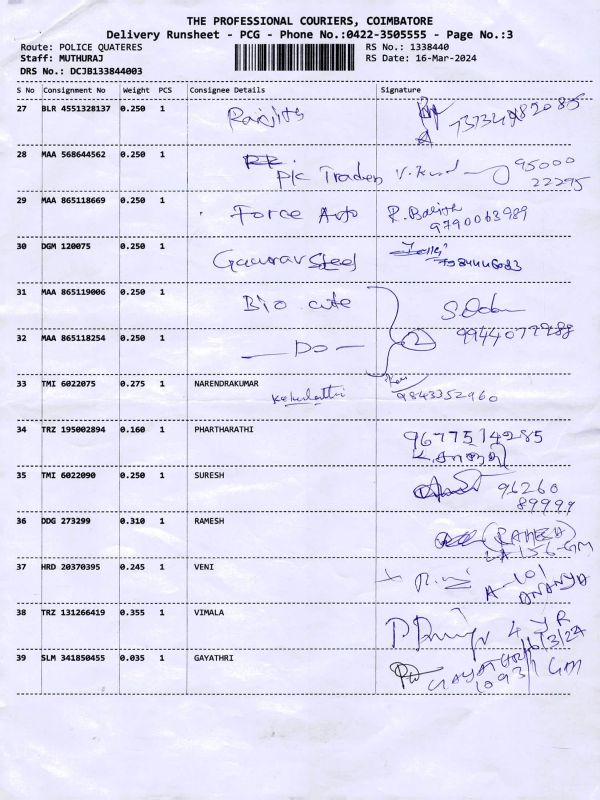 THE PROFESSIONAL COURIERS, COIMBATORE
Delivery Runsheet - PCG - Phone No.:0422-3505555 - Page No.:3
Route: POLICE QUATERES RS No.: 1338440
Staff: MUTHURAJ RS Date: 16-Mar-2024
DRS No.: DCJB133844003
S No Consignment No Weight PCS Consignee Details Signature
27 BLR 4551328137 0.250 1 Ranjith
28 MAA 568644562 0.250 1 P/c Traders 95000
22295
29 MAA 865118669 0.250 1 Force Auto R. Balijth
9790063989
30 DGM 120075 0.250 1 Gaurav Steel
7984446083
31 MAA 865119006 0.250 1 Bio cute
32 MAA 865118254 0.250 1 — Do — 2 9944077288
33 TMI 6022075 0.275 1 NARENDRAKUMAR 9843352960
34 TRZ 195002894 0.160 1 PHARTHARATHI 9677514285
35 TMI 6022090 0.250 1 SURESH 96260
89999
36 DDG 273299 0.310 1 RAMESH
37 HRD 20370395 0.245 1 VENI A-101
ANANYA
38 TRZ 131266419 0.355 1 VIMALA
16/3/24
39 SLM 341850455 0.035 1 GAYATHRI GAYATHRI